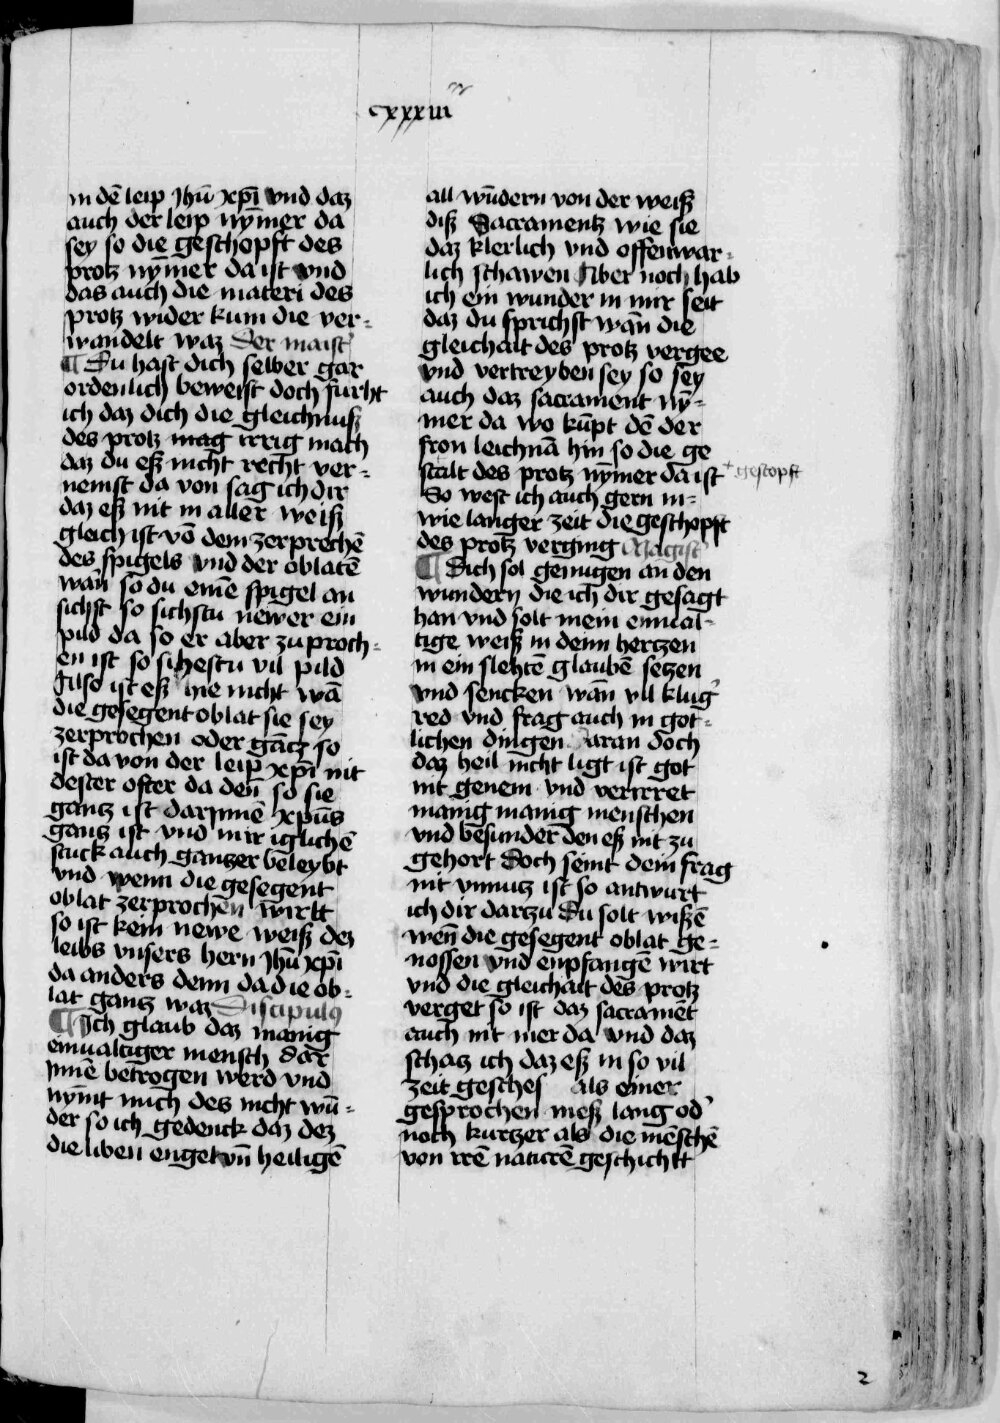 cxxxiii
in dē leip Jhū xp̄i vnd daz
auch der leip nȳmer da
sey so die geschopft des
protz nȳmer da ist vnd
das auch die materi des
protz wider kum die ver=
wandelt waz Der maist̕
¶ Du hast dich selber gar
ordenlich beweist doch furht
ich daz dich die gleichnusz
des protz mag irrig mach
daz du esz nicht recht ver=
nemst da von sag ich dir
daz esz nit in aller weisz
gleich ist vō dem zerprechē
des spigels vnd der oblatē
wān so du einē spigel an
sichst so sichstu newer ein
pild da so er aber zu proch=
en ist so sihestu vil pild
Also ist esz hie nicht wā
die gesegent oblat sie sey
zerprochen oder gātz so
ist da von der leip xp̄i nit
dester ofter da den̄ so sie
gantz ist darinnē xp̄us
gantz ist vnd in ir iglichē
stuck auch gantzer beleybt
vnd wenn die gesegent
oblat zerprochen wirtt
so ist kein newe weisz dez
leibs vnsers hern Jhū xp̄i
da anders denn da die ob=
lat gantz waz Discipulꝯ
¶ Ich glaub daz manig
einualtiger mensch dar
innē betrogen werd vnd
nȳmt mich des nicht wū=
der so ich gedenck daz dez
die liben engel vn̄ heiligē
all wūdern von der weisz
disz Sacramentz wie sie
daz klerlich vnd offenwar=
lich schawen Aber noch hab
ich ein wunder in mir seit
daz du sprichst wān die
gleichait des protz vergee
vnd vertreyben sey so sey
auch daz sacrament nȳ=
mer da wo kūpt dē der
fron leichnā hin so die ge
stalt des protz nȳmer da ist + gestopft
So west ich auch gern in=
wie langer zeit die geschopft
des protz verging Magist̕
¶ Dich sol genugen an den
wundern die ich dir gesagt
han vnd solt mein einual=
tige weisz in dein hertzen
in ein slehtē glaubē setzen
vnd sencken wān vil klug̕
red vnd frag auch in got=
lichen dingen aran doch
daz heil nicht ligt ist got
nit genem vnd verirret
manig manig menschen
vnd besunder den esz nit zu
gehort Doch seint dein frag
nit vnnutz ist so antwurt
ich dir dartzu Du solt wiszē
wen̄ die gesegent oblat ge=
nossen vnd enpfangē wirt
vnd die gleichait des protz
verget so ist daz sacramēt
auch nit mer da vnd daz
schatz ich daz esz in so vil
zeit gesches als einer
gesprochen mesz lang od̕
noch kurtzer als die mēschē
von irē naturē geschichtt
2